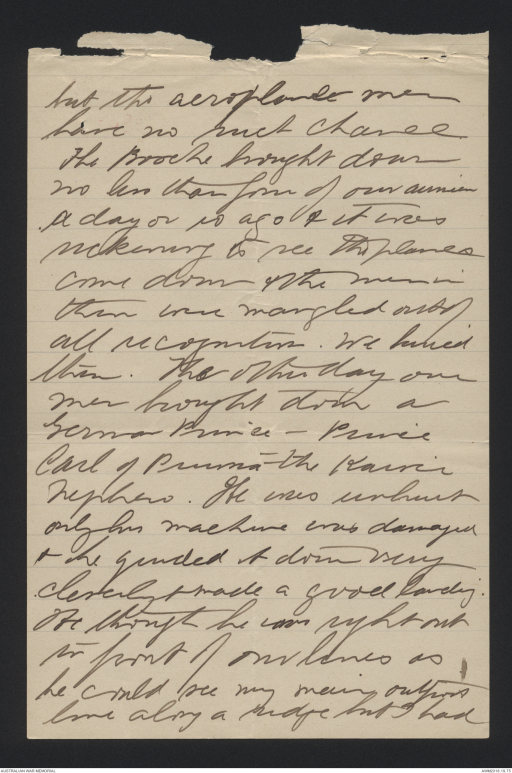 but the aeroplane men
have no such chance
The Bosche brought down
no less than four of our airmen
a day or so ago & it was
sickening to see the planes
come down & the men in
them were mangled out of
all recognition. We buried
them. The other day our
men brought down a
German Prince – Prince
Carl of Prussia – the Kaiser
nephew. He was unhurt
only his machine was damaged
& he guided it down very
cleverly & made a good landing.
He thought he was right out
in front of our lines as
he could see my main outpost
line along a ridge but I had
AUSTRALIAN WAR MEMORIAL